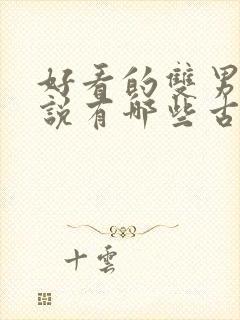 好看的雙男
說有哪些古
十雲